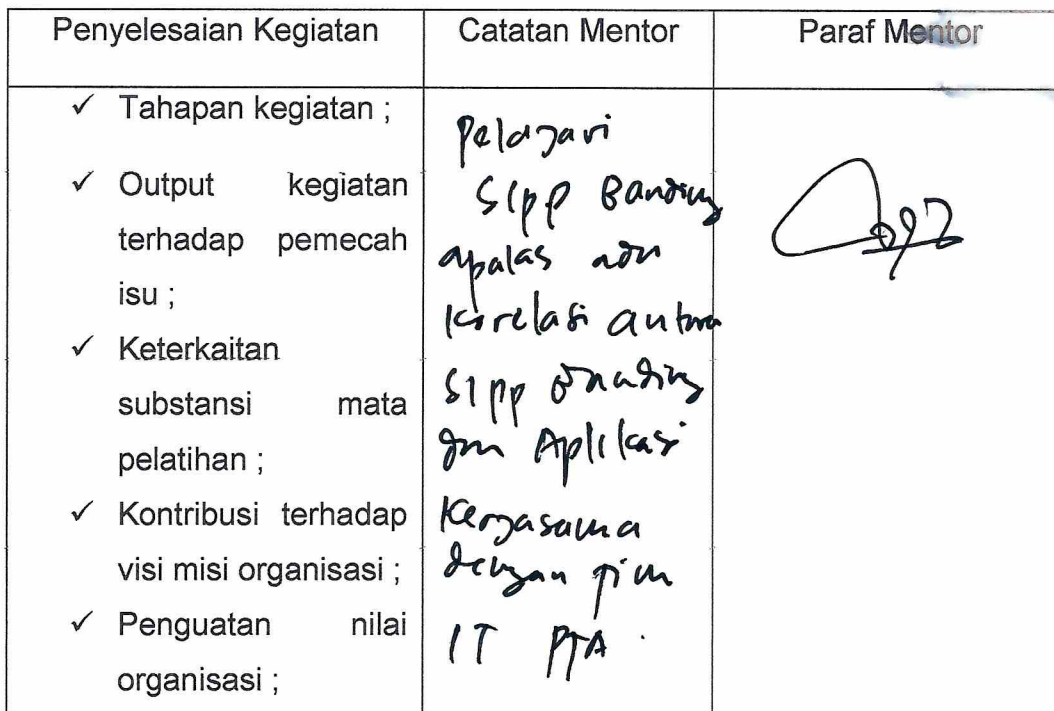 Penyelesaian Kegiatan
Catatan Mentor
Paraf Mentor
✓ Tahapan kegiatan ;
✓ Output kegiatan
terhadap pemecah
isu ;
✓ Keterkaitan
substansi mata
pelatihan ;
✓ Kontribusi terhadap
visi misi organisasi ;
✓ Penguatan nilai
organisasi ;
Pelajari
SIPP Banding
korelasi antara
SIPP Banding
dan Aplikasi
Kerjasama
dengan Tim
IT PTA.